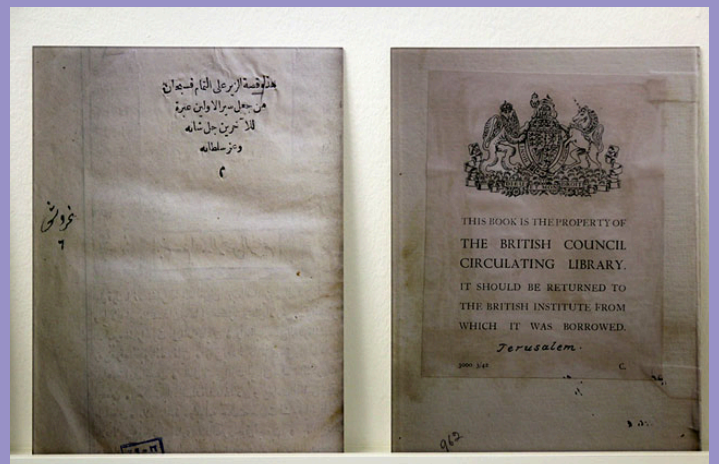 هذه قصة الزير على التمام فسبحان
من جعل سير الاولين عبرة
للآخرين جل شانه
وعز سلطانه
م
غروش
٦
THIS BOOK IS THE PROPERTY OF
THE BRITISH COUNCIL
CIRCULATING LIBRARY.
IT SHOULD BE RETURNED TO
THE BRITISH INSTITUTE FROM
WHICH IT WAS BORROWED.
Jerusalem.
5000. 3/42 C.
962